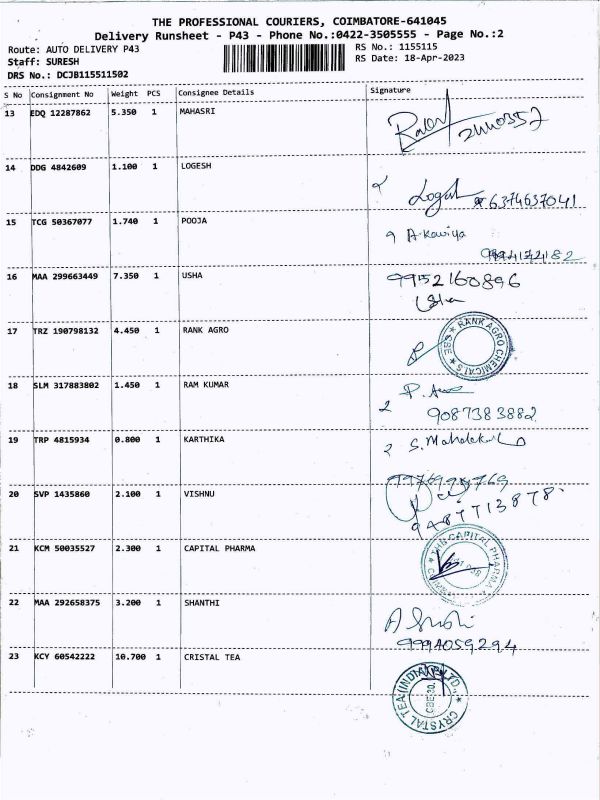 THE PROFESSIONAL COURIERS, COIMBATORE-641045
Delivery Runsheet - P43 - Phone No.:0422-3505555 - Page No.:2
Route: AUTO DELIVERY P43
RS No.: 1155115
Staff: SURESH
RS Date: 18-Apr-2023
DRS No.: DCJB115511502
S No Consignment No Weight PCS Consignee Details Signature
13 EDQ 12287862 5.350 1 MAHASRI
14 DDG 4842609 1.100 1 LOGESH
6374637041
15 TCG 50367077 1.740 1 POOJA A. Kaviya
16 MAA 299663449 7.350 1 USHA 9952160896
Usha
17 TRZ 190798132 4.450 1 RANK AGRO
RANK AGRO CHEMICALS ★ CBE ★
18 SLM 317883802 1.450 1 RAM KUMAR
9087383882
19 TRP 4815934 0.800 1 KARTHIKA
20 SVP 1435860 2.100 1 VISHNU
9487713878
21 KCM 50035527 2.300 1 CAPITAL PHARMA
CAPITAL PHARMA
22 MAA 292658375 3.200 1 SHANTHI
9994059294
23 KCY 60542222 10.700 1 CRISTAL TEA
CRYSTAL TEA (INDIA) LTD.,